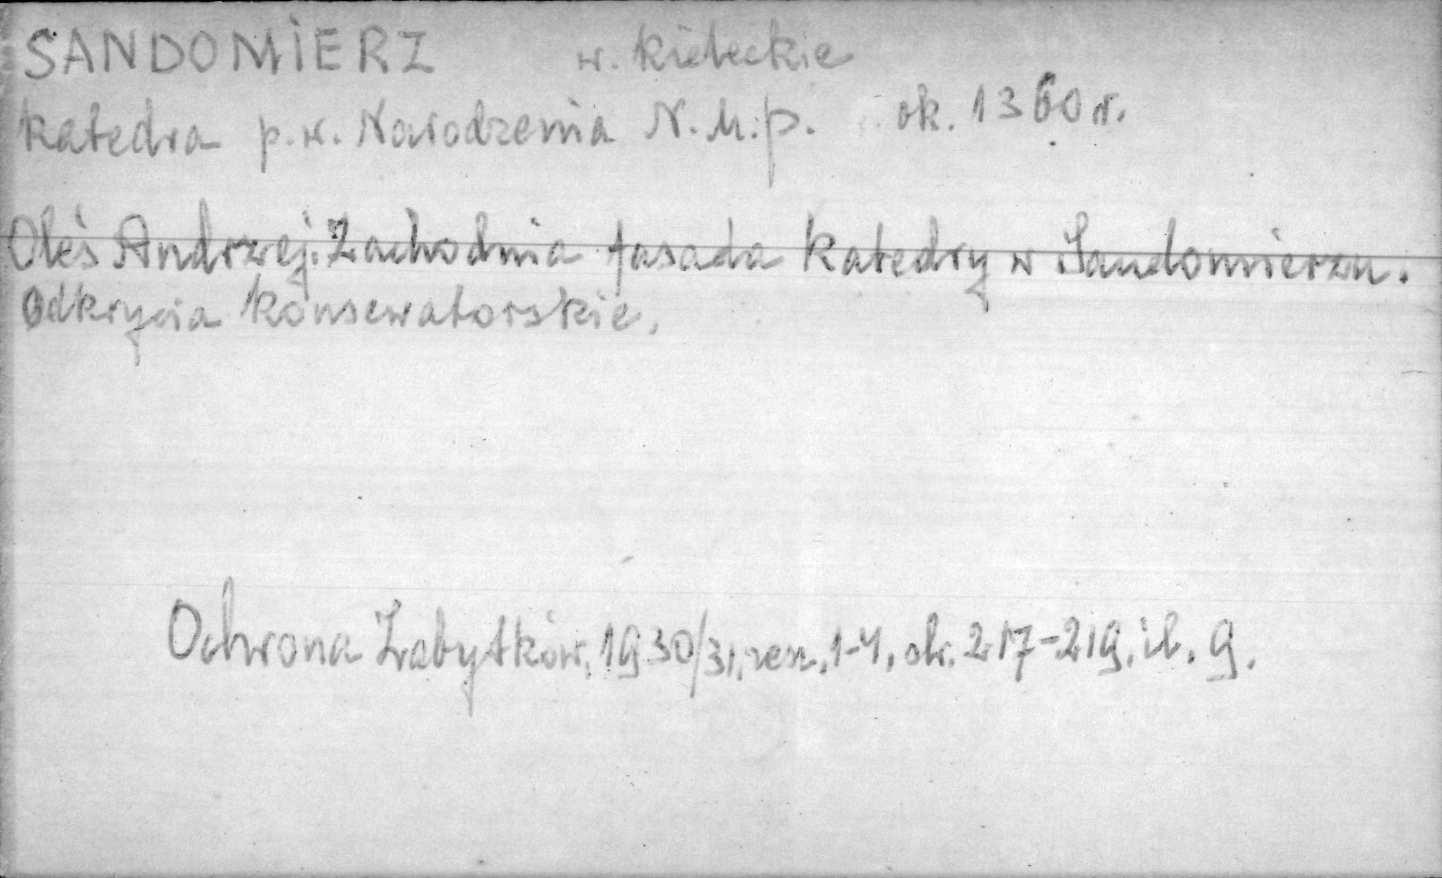 SANDOMIERZ w. kieleckie
katedra p.w. Narodzenia N.M.P. ok. 1360 r.
Oleś Andrzej. Zachodnia fasada katedry w Sandomierzu.
Odkrycia konserwatorskie.
Ochrona Zabytków, 1930/31, zesz. 1-4, str. 217-219, il. 9.